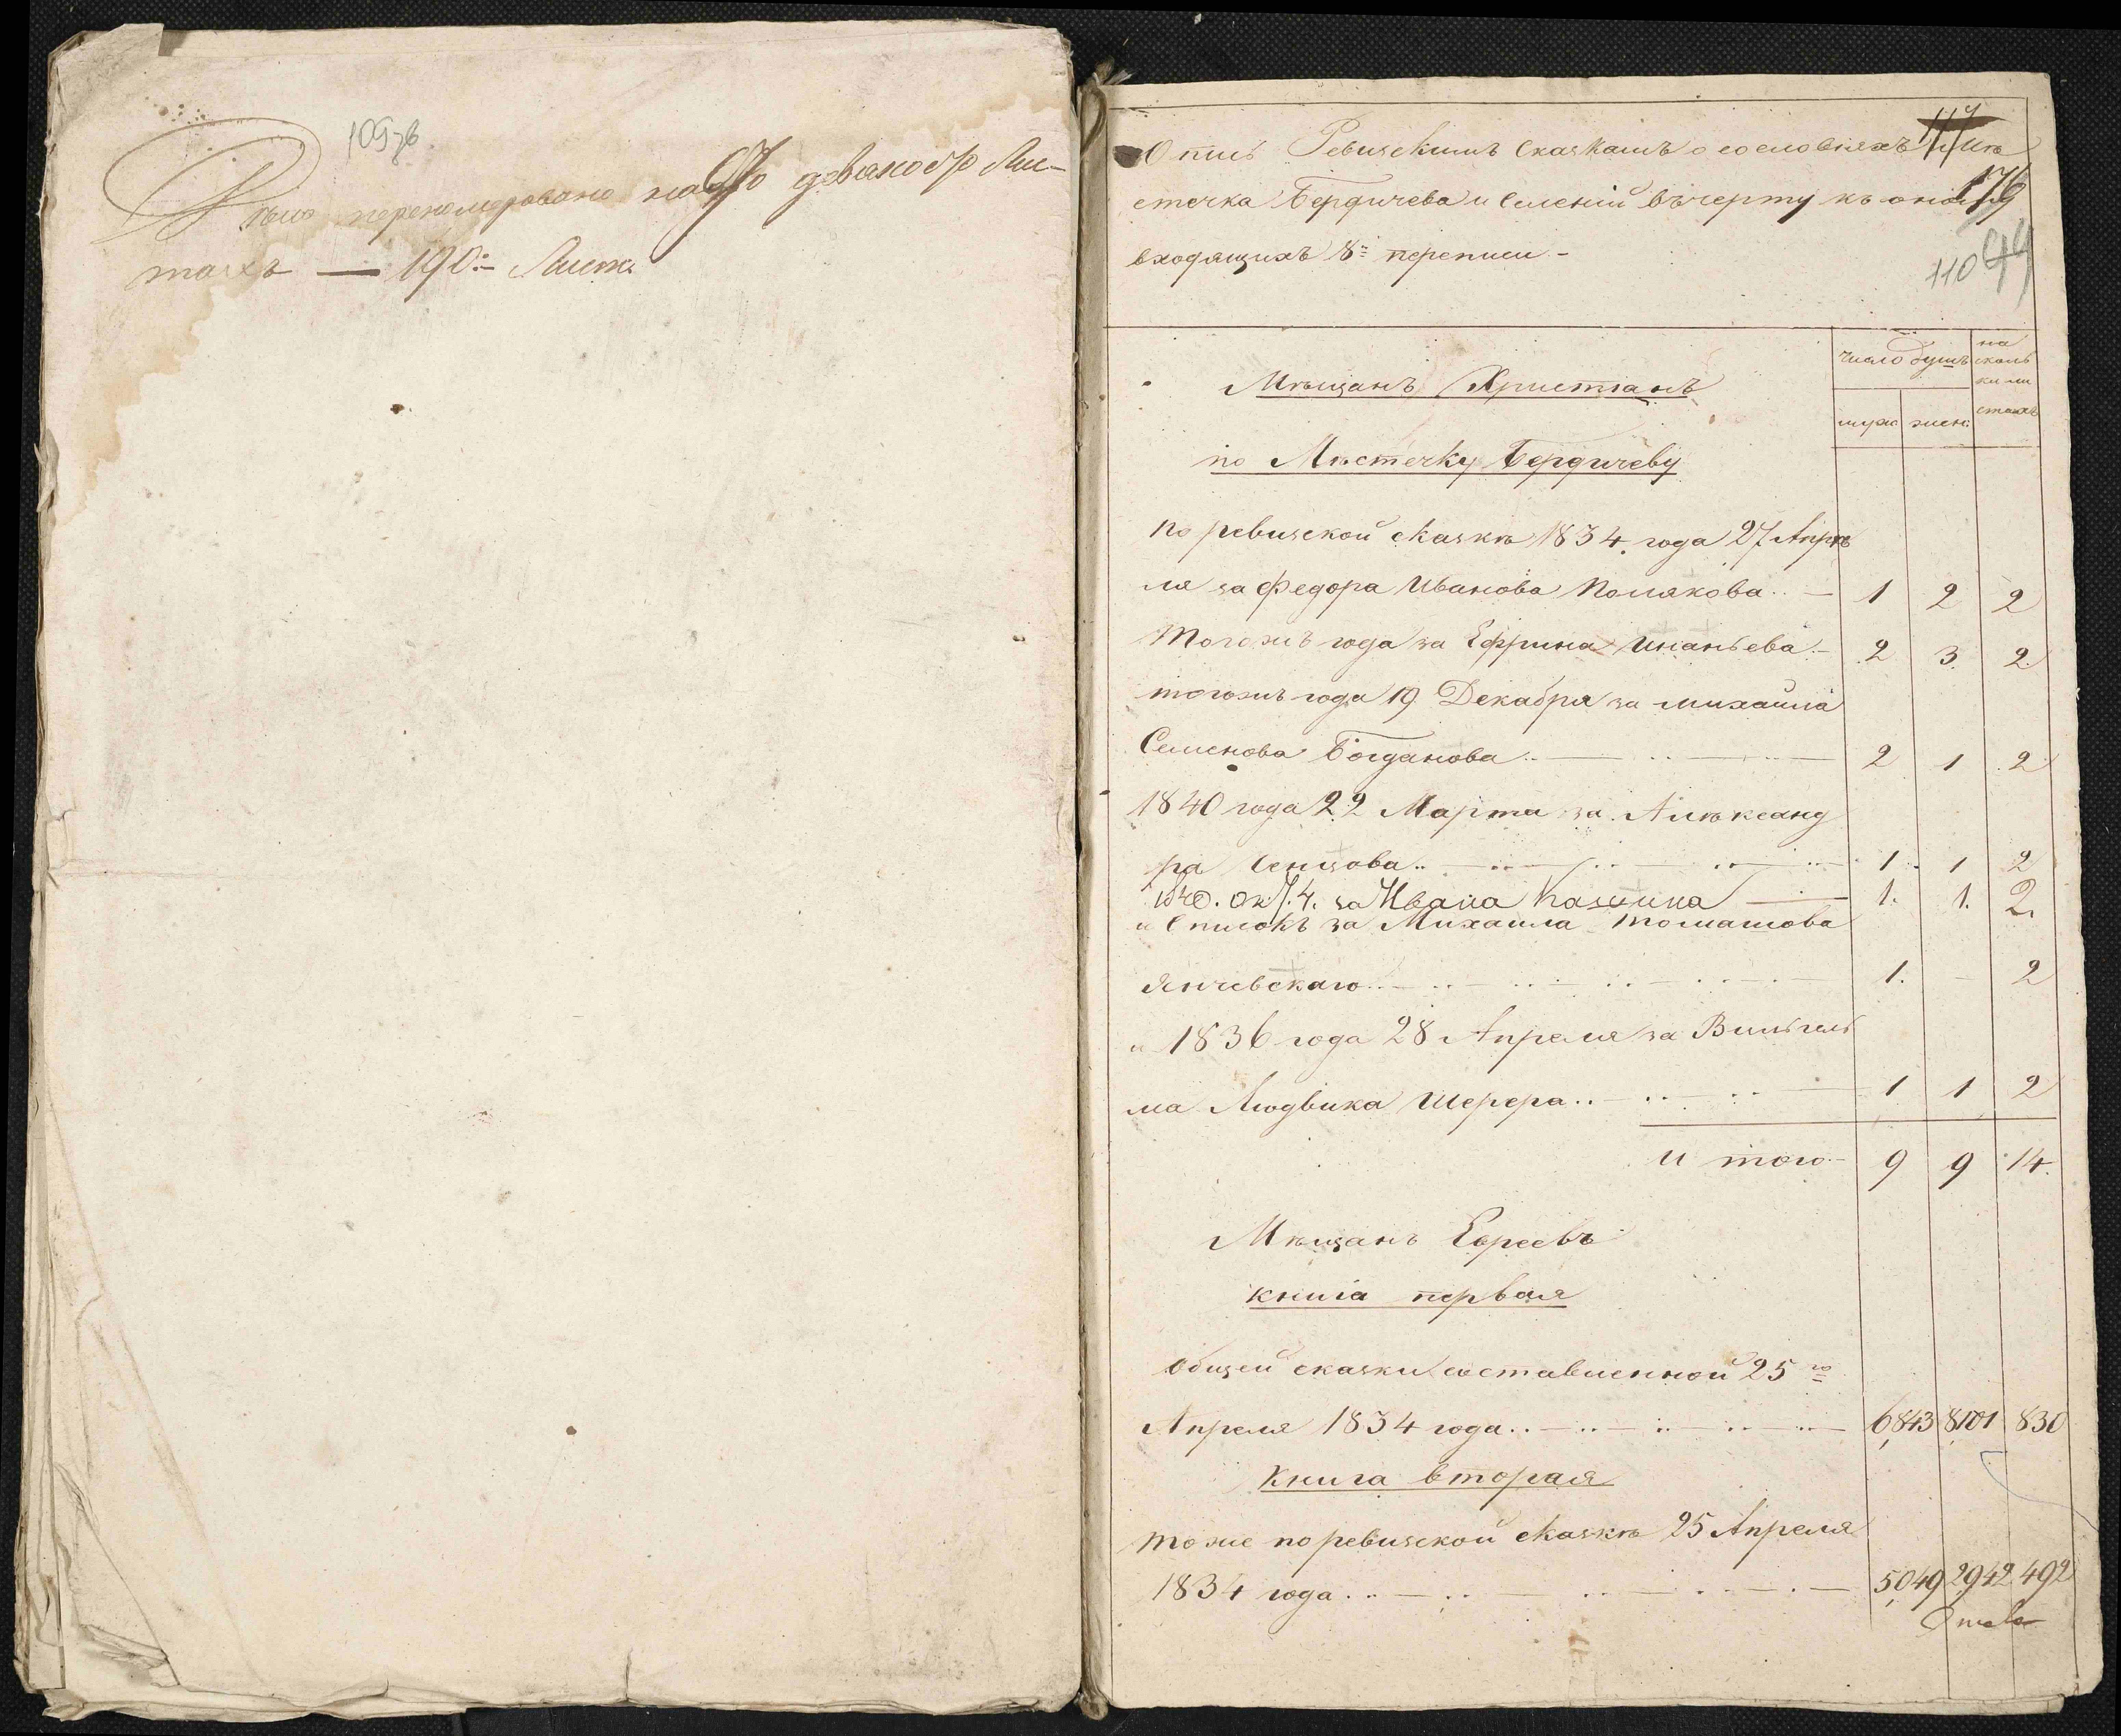 109 зв
Дѣло перенумеровано на 190 девяносто Лис-
тахъ — 190:- Листа
117
Опись Ревизскимъ Сказкамъ о сословіяхъ Мѣ
стечка Бердичева и Селеній въ черту къ оной
176
входящихъ 8й переписи -
110
число душъ
на сколь ки ли стахъ
муж жен:
Мѣщанъ Христіанъ
по Мѣстечку Бердичеву
по ревизской сказкѣ 1834. года 27 Апрѣ
ля за Федора Иванова Полякова .. — 1 2 2
Тогожъ года за Ефрима Инаньева — 2 3. 2.
тогожъ года 19 Декабря за Михаила
Семенова Богданова .. — .. — .. — 2 1 2
1840 года 22 Марта за Алѣксанд
ра Сенцова .. — .. — .. — 1. 1 2
1840. Ок. 4. за Ивана — 1. 1. 2.
и Списокъ за Михаила Томашова
Янчевскаго .. — .. — .. — 1. - 2
и 1836 года 28 Апреля за Вильгель
ма Людвика Шерера .. — .. — 1 1 2
и того — 9 9 14.
Мѣщанъ Евреевъ
книга первая
Общей сказки составленной 25го
Апреля 1834 года .. — .. — .. — 6,843 8,101 830
Книга вторая
тоже по ревизской сказкѣ 25 Апреля
1834 года .. — .. — .. — 5,049 2,942 492